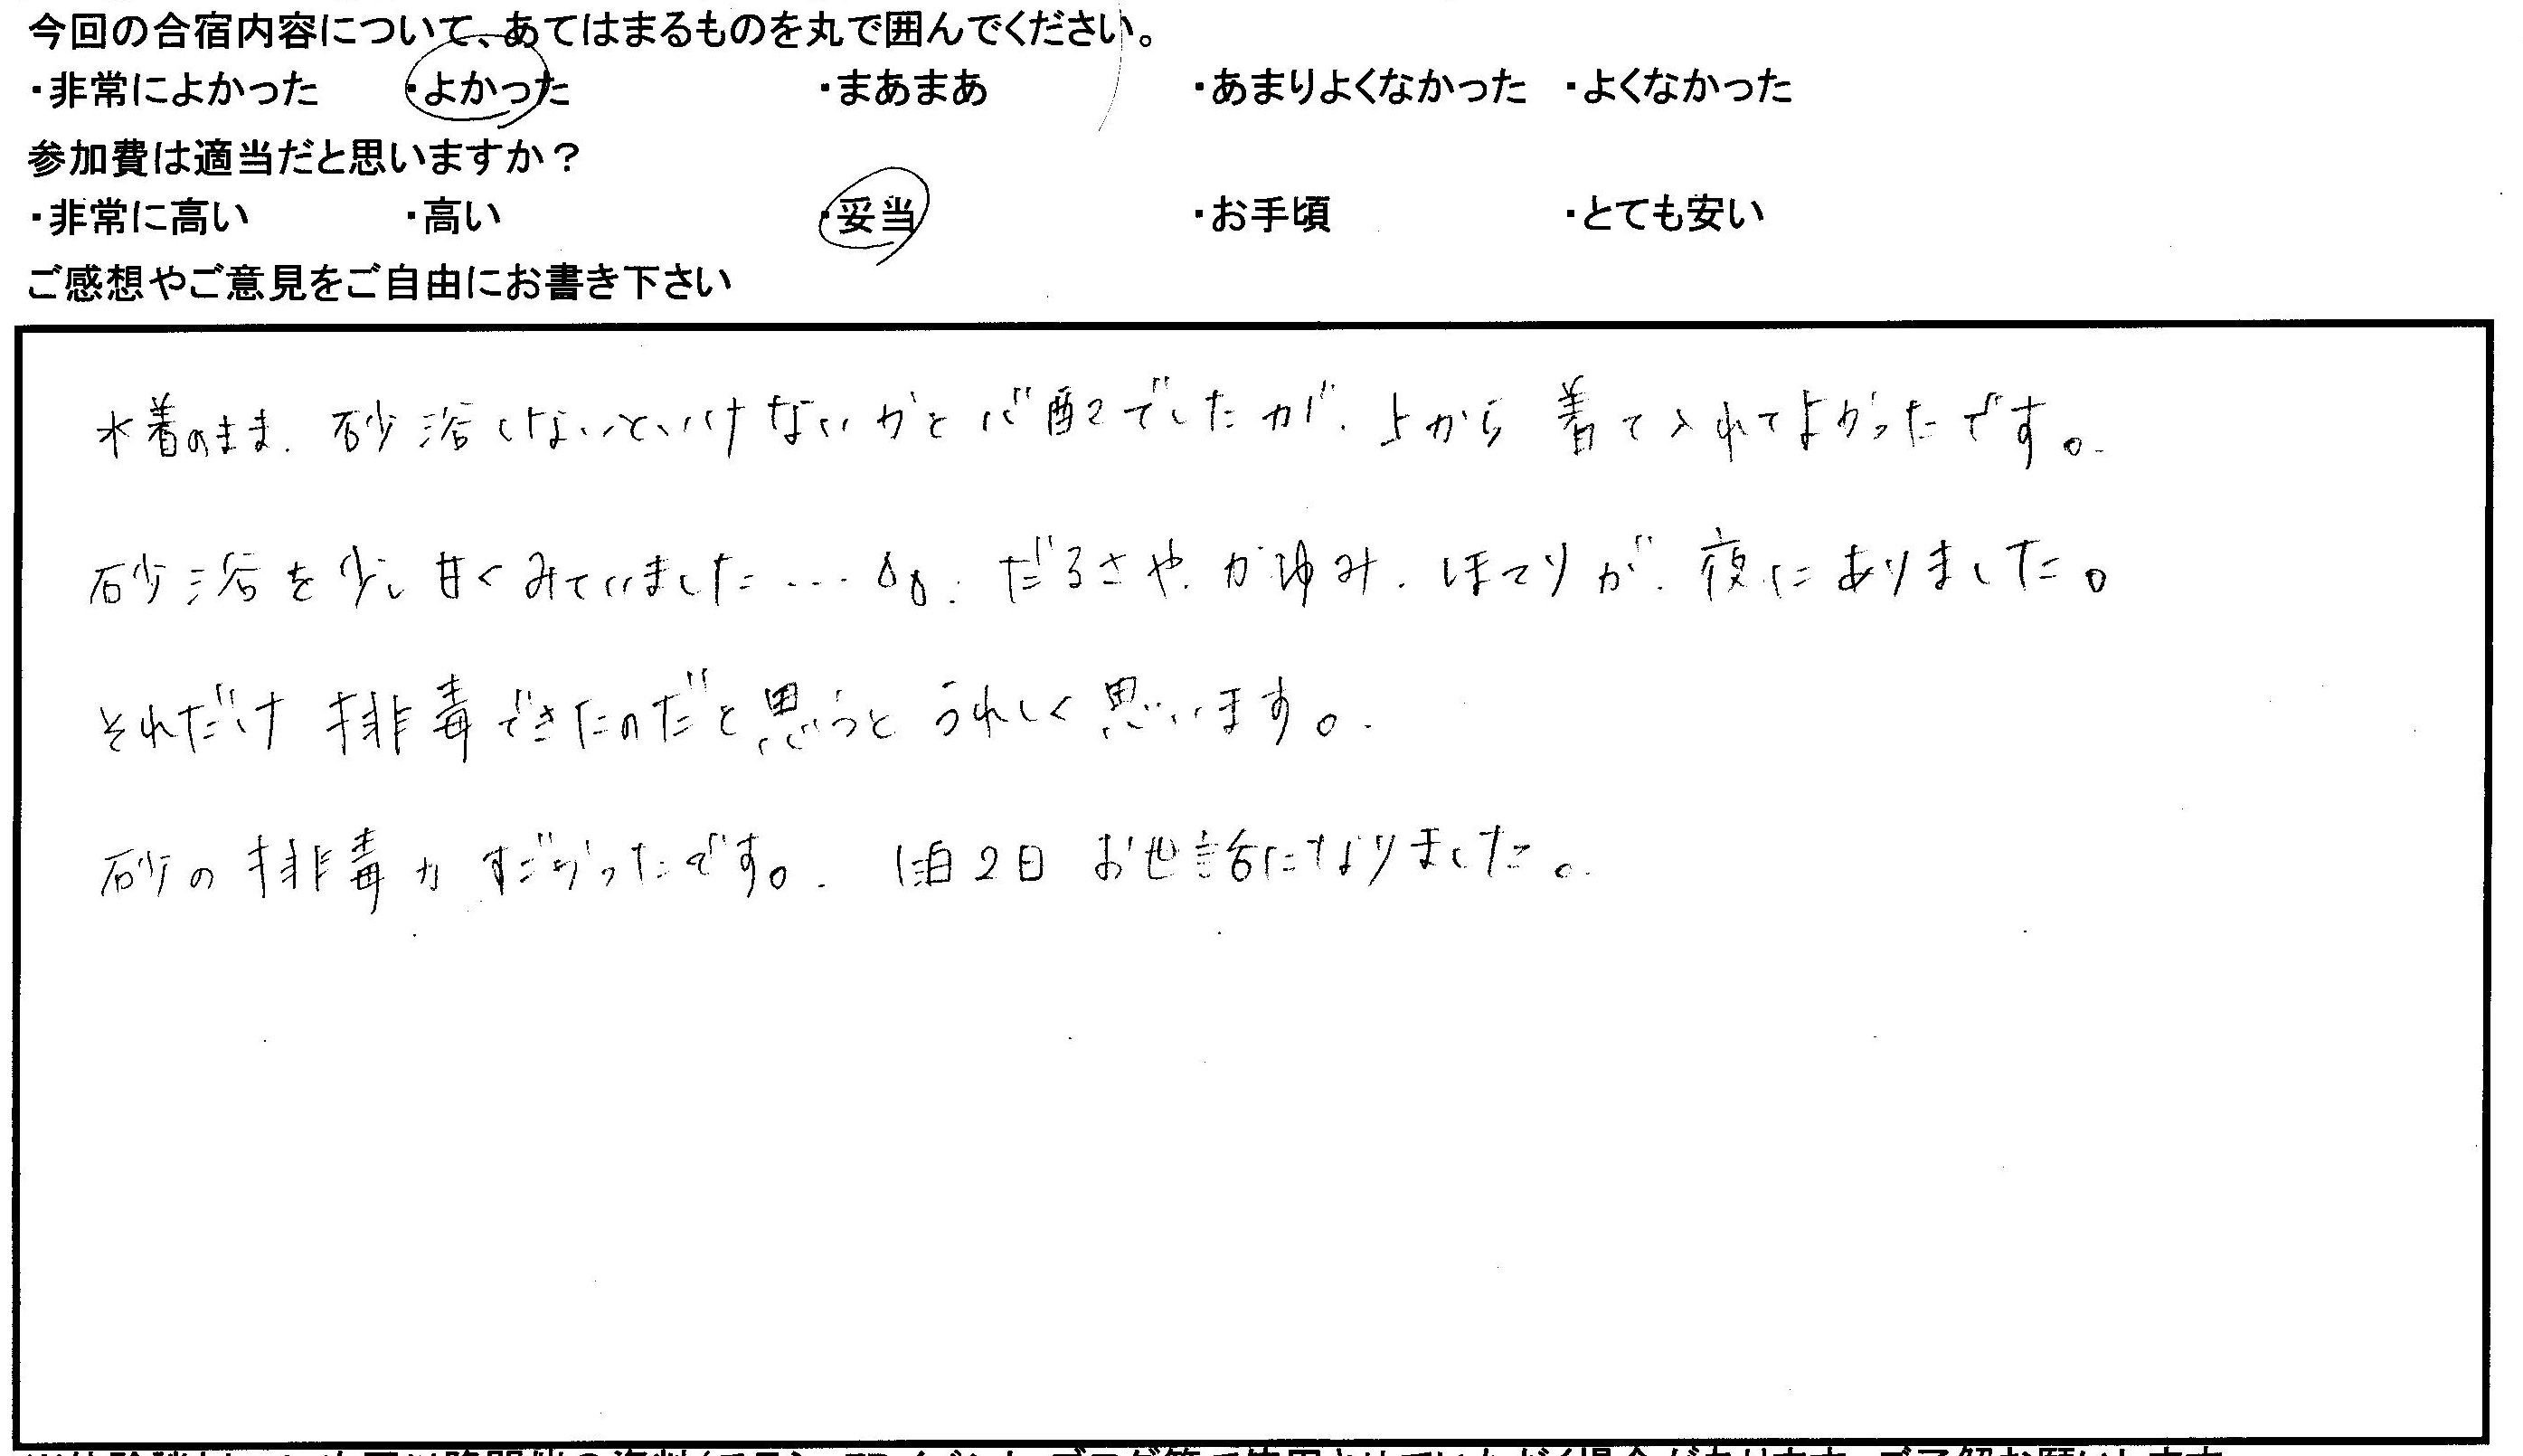 今回の合宿内容について、あてはまるものを丸で囲んでください。
・非常によかった ・よかった ・まあまあ ・あまりよくなかった ・よくなかった
参加費は適当だと思いますか？
・非常に高い ・高い ・妥当 ・お手頃 ・とても安い
ご感想やご意見をご自由にお書き下さい
水着のまま、砂浴しないといけないかと心配でしたが、上から着て入れてよかったです。
砂浴を少し甘くみていました… だるさや、かゆみ、ほてりが、夜にありました。
それだけ排毒できたのだと思うとうれしく思います。
砂の排毒力すごかったです。1泊2日お世話になりました。